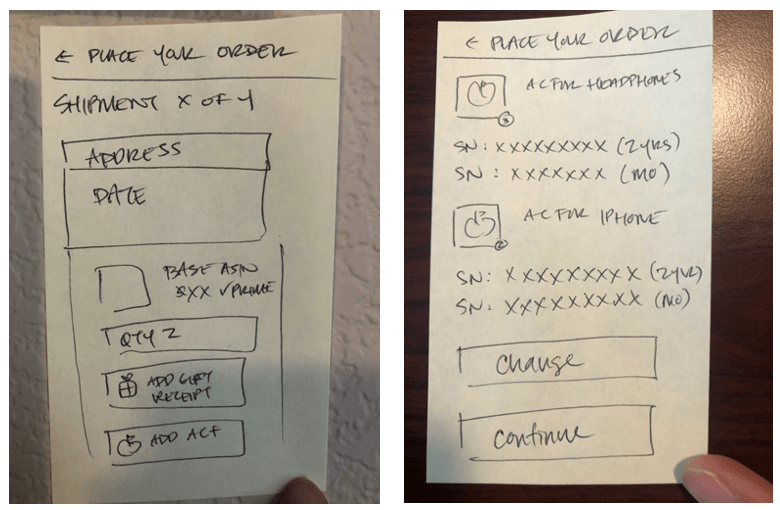 ← PLACE YOUR ORDER
SHIPMENT X OF Y
ADDRESS
DATE
BASE ASIN
$XX ✓PRIME
QTY 2
ADD GIFT
RECEIPT
ADD AC+
← PLACE YOUR ORDER
AC FOR HEADPHONES
2
SN: XXXXXXXXX (2YRS)
SN: XXXXXXX (MO)
AC FOR IPHONE
2
SN: XXXXXXXX (2YR)
SN: XXXXXXXXX (MO)
Change
Continue